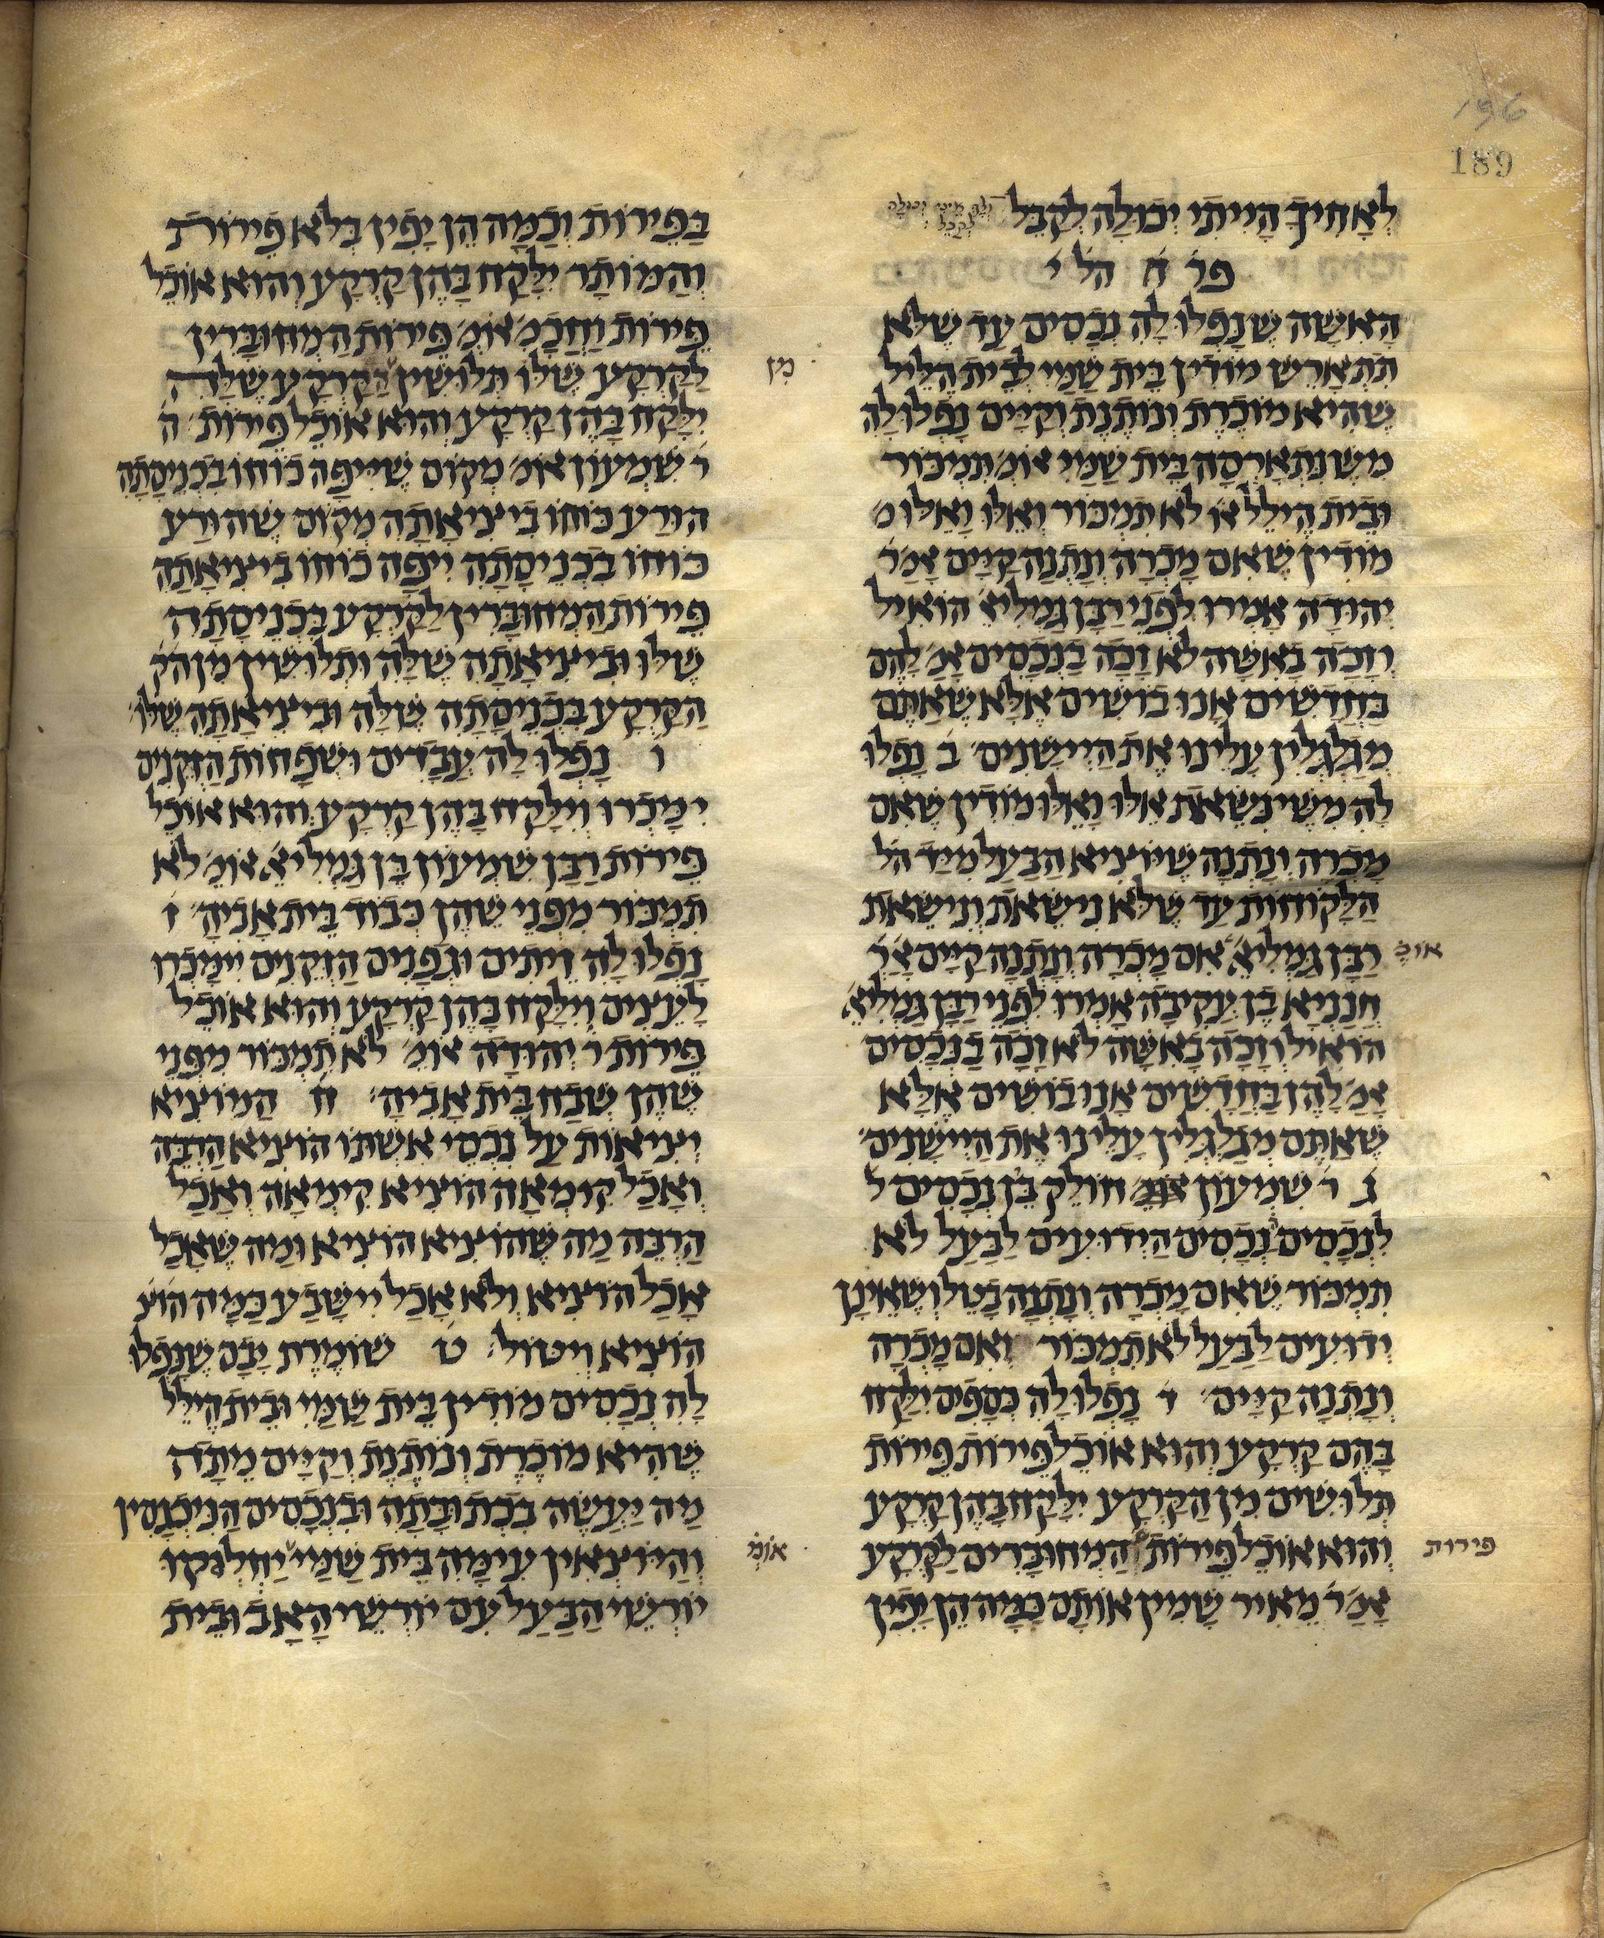 196
189
לְאָחִיךָ הָיִיתִי יְכוּלָה לְקַבֵּל
פר׳ ח הל׳ י׳
הָאִשָּׁה שֶׁנָּפְלוּ לָהּ נְכָסִים עַד שֶׁלֹּא
תִתְאָרֵשׂ מוֹדִין בֵּית שַׁמַּי לְבֵית הֶלֵּיל
שֶׁהִיא מוֹכֶרֶת וְנוֹתֶנֶת וְקַיָּים נָפְלוּ לָהּ
מִשֶּׁנִּתְאָרְסָה בֵּית שַׁמַּי אוֹמְ׳ תִּמְכּוֹר
וּבֵית הֶילֵּל אוֹ׳ לֹא תִמְכּוֹר וְאֵלּוּ וָאֵלּוּ מ׳
מוֹדִין שֶׁאִם מָכְרָה וְנָתְנָה קַיָּים אָמַ׳ ר׳
יְהוּדָה אָמְרוּ לִפְנֵי רַבָּן גַּמְלִיאֵ׳ הוֹאִיל
וְזָכָה בָאִשָּׁה לֹא זָכָה בַנְּכָסִים אָמַ׳ לָהֶם
בַּחֲדָשִׁים אָנוּ בוֹשִׁים אֶלָּא שֶׁאַתֶּם
מְגַלְגְּלִין עָלֵינוּ אֶת הַיְשָׁנִים׳ ב׳ נָפְלוּ
לָהּ מִשֶּׁנִּשֵּׂאת אֵלּוּ וָאֵלּוּ מוֹדִין שֶׁאִם
מָכְרָה וְנָתְנָה שֶׁיּוֹצִיא הַבַּעַל מִיַּד הל
הַלָּקוֹחוֹת עַד שֶׁלֹּא נִישֵּׂאת וְנִישֵּׂאת
רַבָּן גַּמְלִיאֵ׳ אִם מָכְרָה וְנָתְנָה קַיָּים אָ׳ ר׳
אומ׳
חֲנַנְיָא בֶן עֲקִיבָה אָמְרוּ לִפְנֵי רַבָּן גַּמְלִיאֵ׳
הוֹאִיל וְזָכָה בָאִשָּׁה לֹא זָכָה בַנְּכָסִים
אָמַ׳ לָהֶן בַּחֲדָשִׁים אָנוּ בוֹשִׁים אֶלָּא
שֶׁאַתֶּם מְגַלְגְּלִין עָלֵינוּ אֶת הַיְשָׁנִים׳
ג ר׳ שִׁמְעוֹן חוֹלֵק בֵּין נְכָסִים ל
לִנְכָסִים נְכָסִים הַיְדוּעִים לַבַּעַל לֹא
תִמְכּוֹר שֶׁאִם מָכְרָה וְנָתְנָה בָּטֵל וְשֶׁאֵינָן
יְדוּעִים לַבַּעַל לֹא תִמְכּוֹר וְאִם מָכְרָה
וְנָתְנָה קַיָּים׳ ד׳ נָפְלוּ לָהּ כְּסָפִים יִלָּקַח
בָּהֶם קַרְקַע וְהוּא אוֹכֵל פֵּירוֹת פֵּירוֹת
תְּלוּשִׁים מִן הַקַּרְקַע יִלָּקַח בָּהֶן קַרְקַע
וְהוּא אוֹכֵל פֵּירוֹת הַמְחוּבָּרִים לַקַּרְקַע
פירות
אָמַ׳ ר׳ מֵאִיר שָׁמִין אוֹתָם כַּמָּה הֵן יָפִין
בַּפֵּירוֹת וְכַמָּה הֵן יָפִין בְּלֹא פֵירוֹת
וְהַמּוֹתָר יִלָּקַח בָּהֶן קַרְקַע וְהוּא אוֹכֵל
פֵּירוֹת וַחֲכָמִ׳ אוֹמְ׳ פֵּירוֹת הַמְחוּבָּרִין
לַקַּרְקַע שֶׁלּוֹ תְּלוּשִׁין הַקַּרְקַע שֶׁלָּהּ
מִן
יִלָּקַח בָּהֶן קַרְקַע וְהוּא אוֹכֵל פֵּירוֹת׳ ה
ר׳ שִׁמְעוֹן אוֹמֵ׳ מְקוֹם שֶׁיִּיפָּה כוֹחוֹ בִכְנִיסָתָהּ
הוּרַע כּוֹחוֹ בִיצִיאָתָהּ מְקוֹם שֶׁהוּרַע
כּוֹחוֹ בִכְנִיסָתָהּ יִיפָּה כוֹחוֹ בִיצִיאָתָהּ
פֵּירוֹת הַמְחוּבָּרִין לַקַּרְקַע בִּכְנִיסָתָהּ
שֶׁלּוֹ וּבִיצִיאָתָהּ שֶׁלָּהּ וּתְלוּשִׁין מִן הק׳
הַקַּרְקַע בִּכְנִיסָתָהּ שֶׁלָּהּ וּבִיצִיאָתָהּ שֶׁלּוֹ׳
ו נָפְלוּ לָהּ עֲבָדִים וּשְׁפָחוֹת הַזְּקֵנִים
יִמָּכְרוּ וְיִלָּקַח בָּהֶן קַרְקַע וְהוּא אוֹכֵל
פֵּירוֹת רַבָּן שִׁמְעוֹן בֶּן גַּמְלִיאֵ׳ אוֹמֵ׳ לֹא
תִמְכּוֹר מִפְּנֵי שֶׁהֶן כְּבוֹד בֵּית אָבִיהָ׳ ז׳
נָפְלוּ לָהּ זֵיתִים וּגְפָנִים הַזְּקֵנִים יִימָּכְרוּ
לָעֵצִים וְיִלָּקַח בָּהֶן קַרְקַע וְהוּא אוֹכֵל
פֵּירוֹת ר׳ יְהוּדָה אוֹמֵ׳ לֹא תִמְכּוֹר מִפְּנֵי
שֶׁהֶן שְׁבַח בֵּית אָבִיהָ׳ ח הַמּוֹצִיא
יְצִיאוֹת עַל נִכְסֵי אִשְׁתּוֹ הוֹצִיא הַרְבֵּה
וְאָכַל קִימְאָה הוֹצִיא קִימְאָה וְאָכַל
הַרְבֵּה מַה שֶּׁהוֹצִיא הוֹצִיא וּמַה שֶּׁאָכַל
אָכַל הוֹצִיא וְלֹא אָכַל יִישָּׁבַע כַּמָּה הוֹצ׳
הוֹצִיא וְיִטּוֹל׳ ט׳ שׁוֹמֶרֶת יָבָם שֶׁנָּפְלוּ
לָהּ נְכָסִים מוֹדִין בֵּית שַׁמַּי וּבֵית הֶילֵּל
שֶׁהִיא מוֹכֶרֶת וְנוֹתֶנֶת וְקַיָּים מֵתָה
מַה יַּעֲשֶׂה בִכְתוּבָּתָהּ וּבִנְכָסִים הַנִּיכְנָסִין
וְהַיּוֹצְאִין עִימָּהּ בֵּית שַׁמַּי יַחְלְקוּ
אוֹמְ׳
יוֹרְשֵׁי הַבַּעַל עִם יוֹרְשֵׁי הָאָב וּבֵית